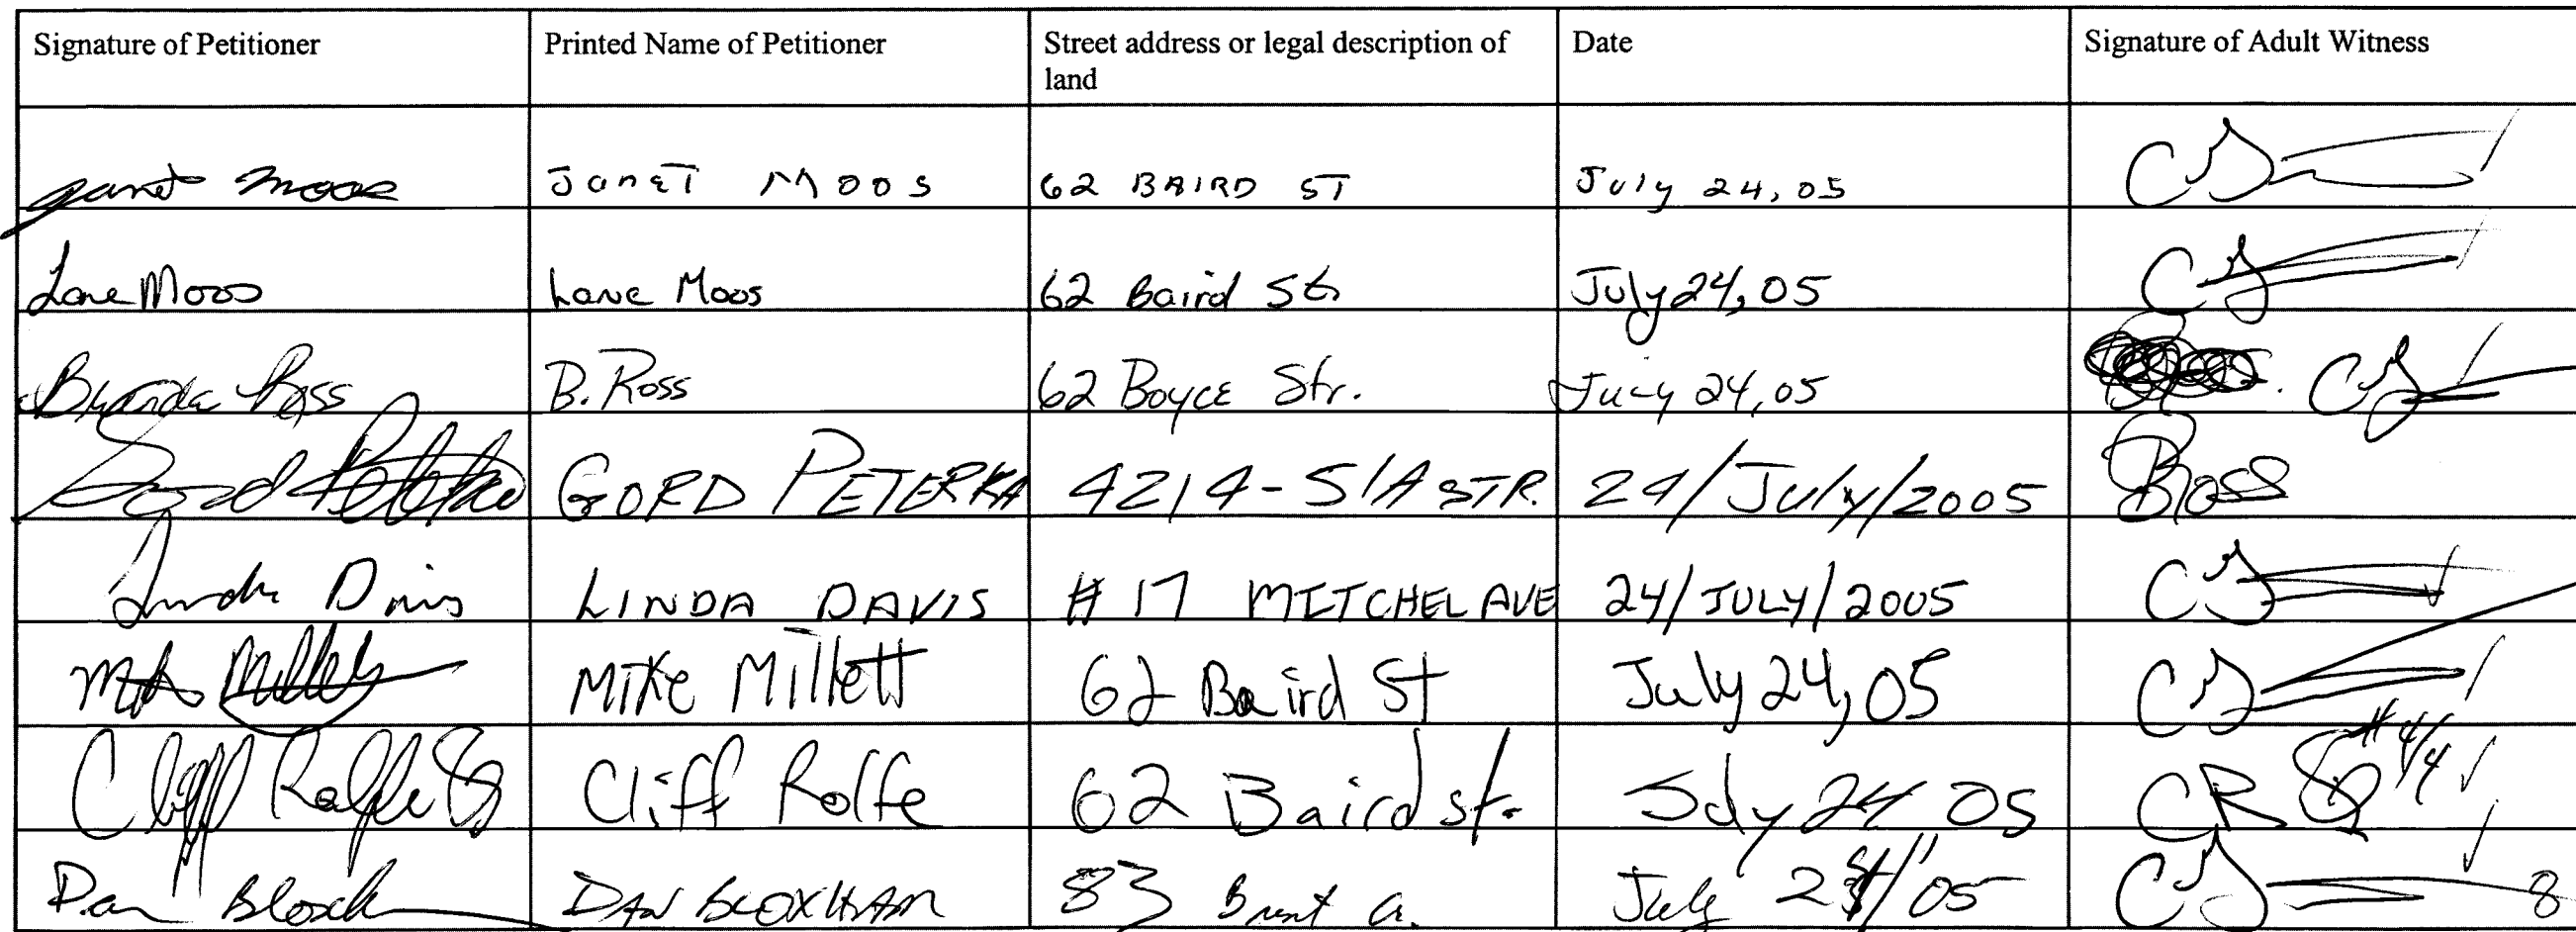 Signature of Petitioner Printed Name of Petitioner Street address or legal description of land Date Signature of Adult Witness
Janet Moos JANET MOOS 62 BAIRD ST July 24, 05 CJ
Lane Moos Lane Moos 62 Baird St. July 24, 05 CJ
Brenda Ross B. Ross 62 Boyce Str. July 24, 05 CJ
Gord Peterka GORD PETERKA 4214-51A STR. 24/July/2005 BRoss
Linda Davis LINDA DAVIS # 17 MITCHEL AVE 24/JULY/2005 CJ
Mike Millett Mike Millett 62 Baird St July 24, 05 CJ
Cliff Rolfe Cliff Rolfe 62 Baird st. July 24/05 CR
Dan Blox DAN BLOXHAM 83 July 24/05 CJ 8